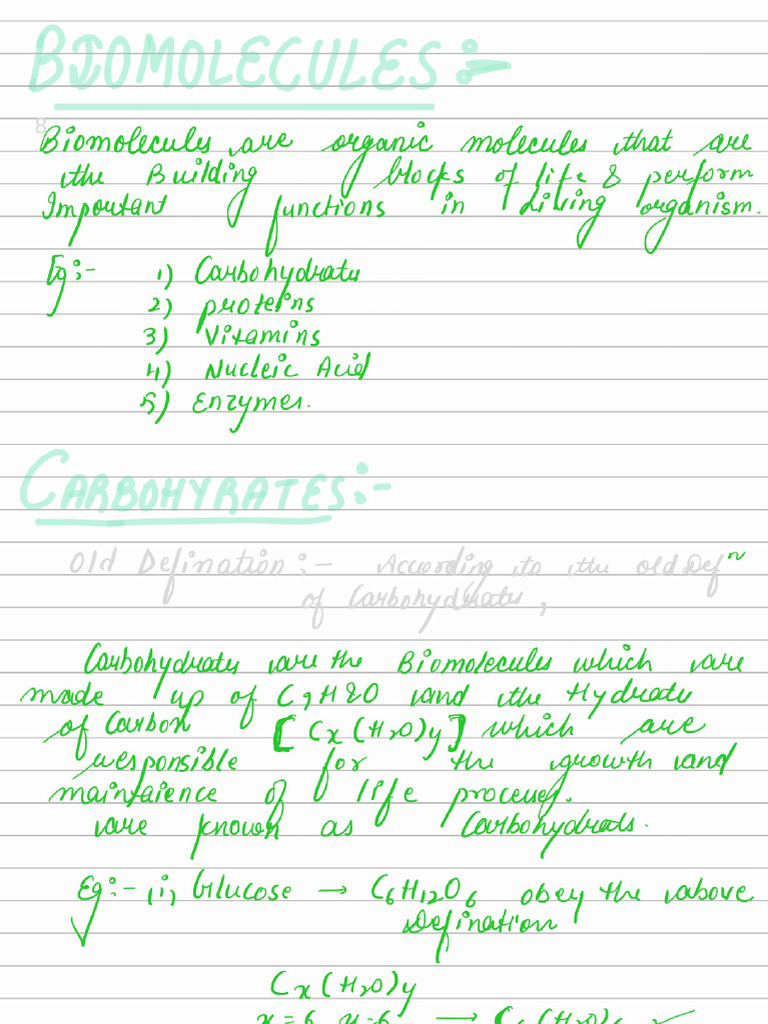 BIOMOLECULES:-
8
Biomolecules are organic molecules that are
the Building blocks of life & perform
Important functions in Living organism.
Eg:- 1) Carbohydrate
2) proteins
3) Vitamins
4) Nucleic Acid
5) Enzymes.
CARBOHYRATES:-
Old Defination:- According to the old Defⁿ
of Carbohydrates,
Carbohydrates are the Biomolecules which are
made up of C, H & O and the Hydrate
of Carbon [Cx(H2O)y] which are
responsible for the growth and
maintaience of life processes.
are known as Carbohydrats.
Eg:- (i) Glucose → C6H12O6 obey the above
Defination
Cx(H2O)y
x=6, y=6 → C6(H2O)6 ✓